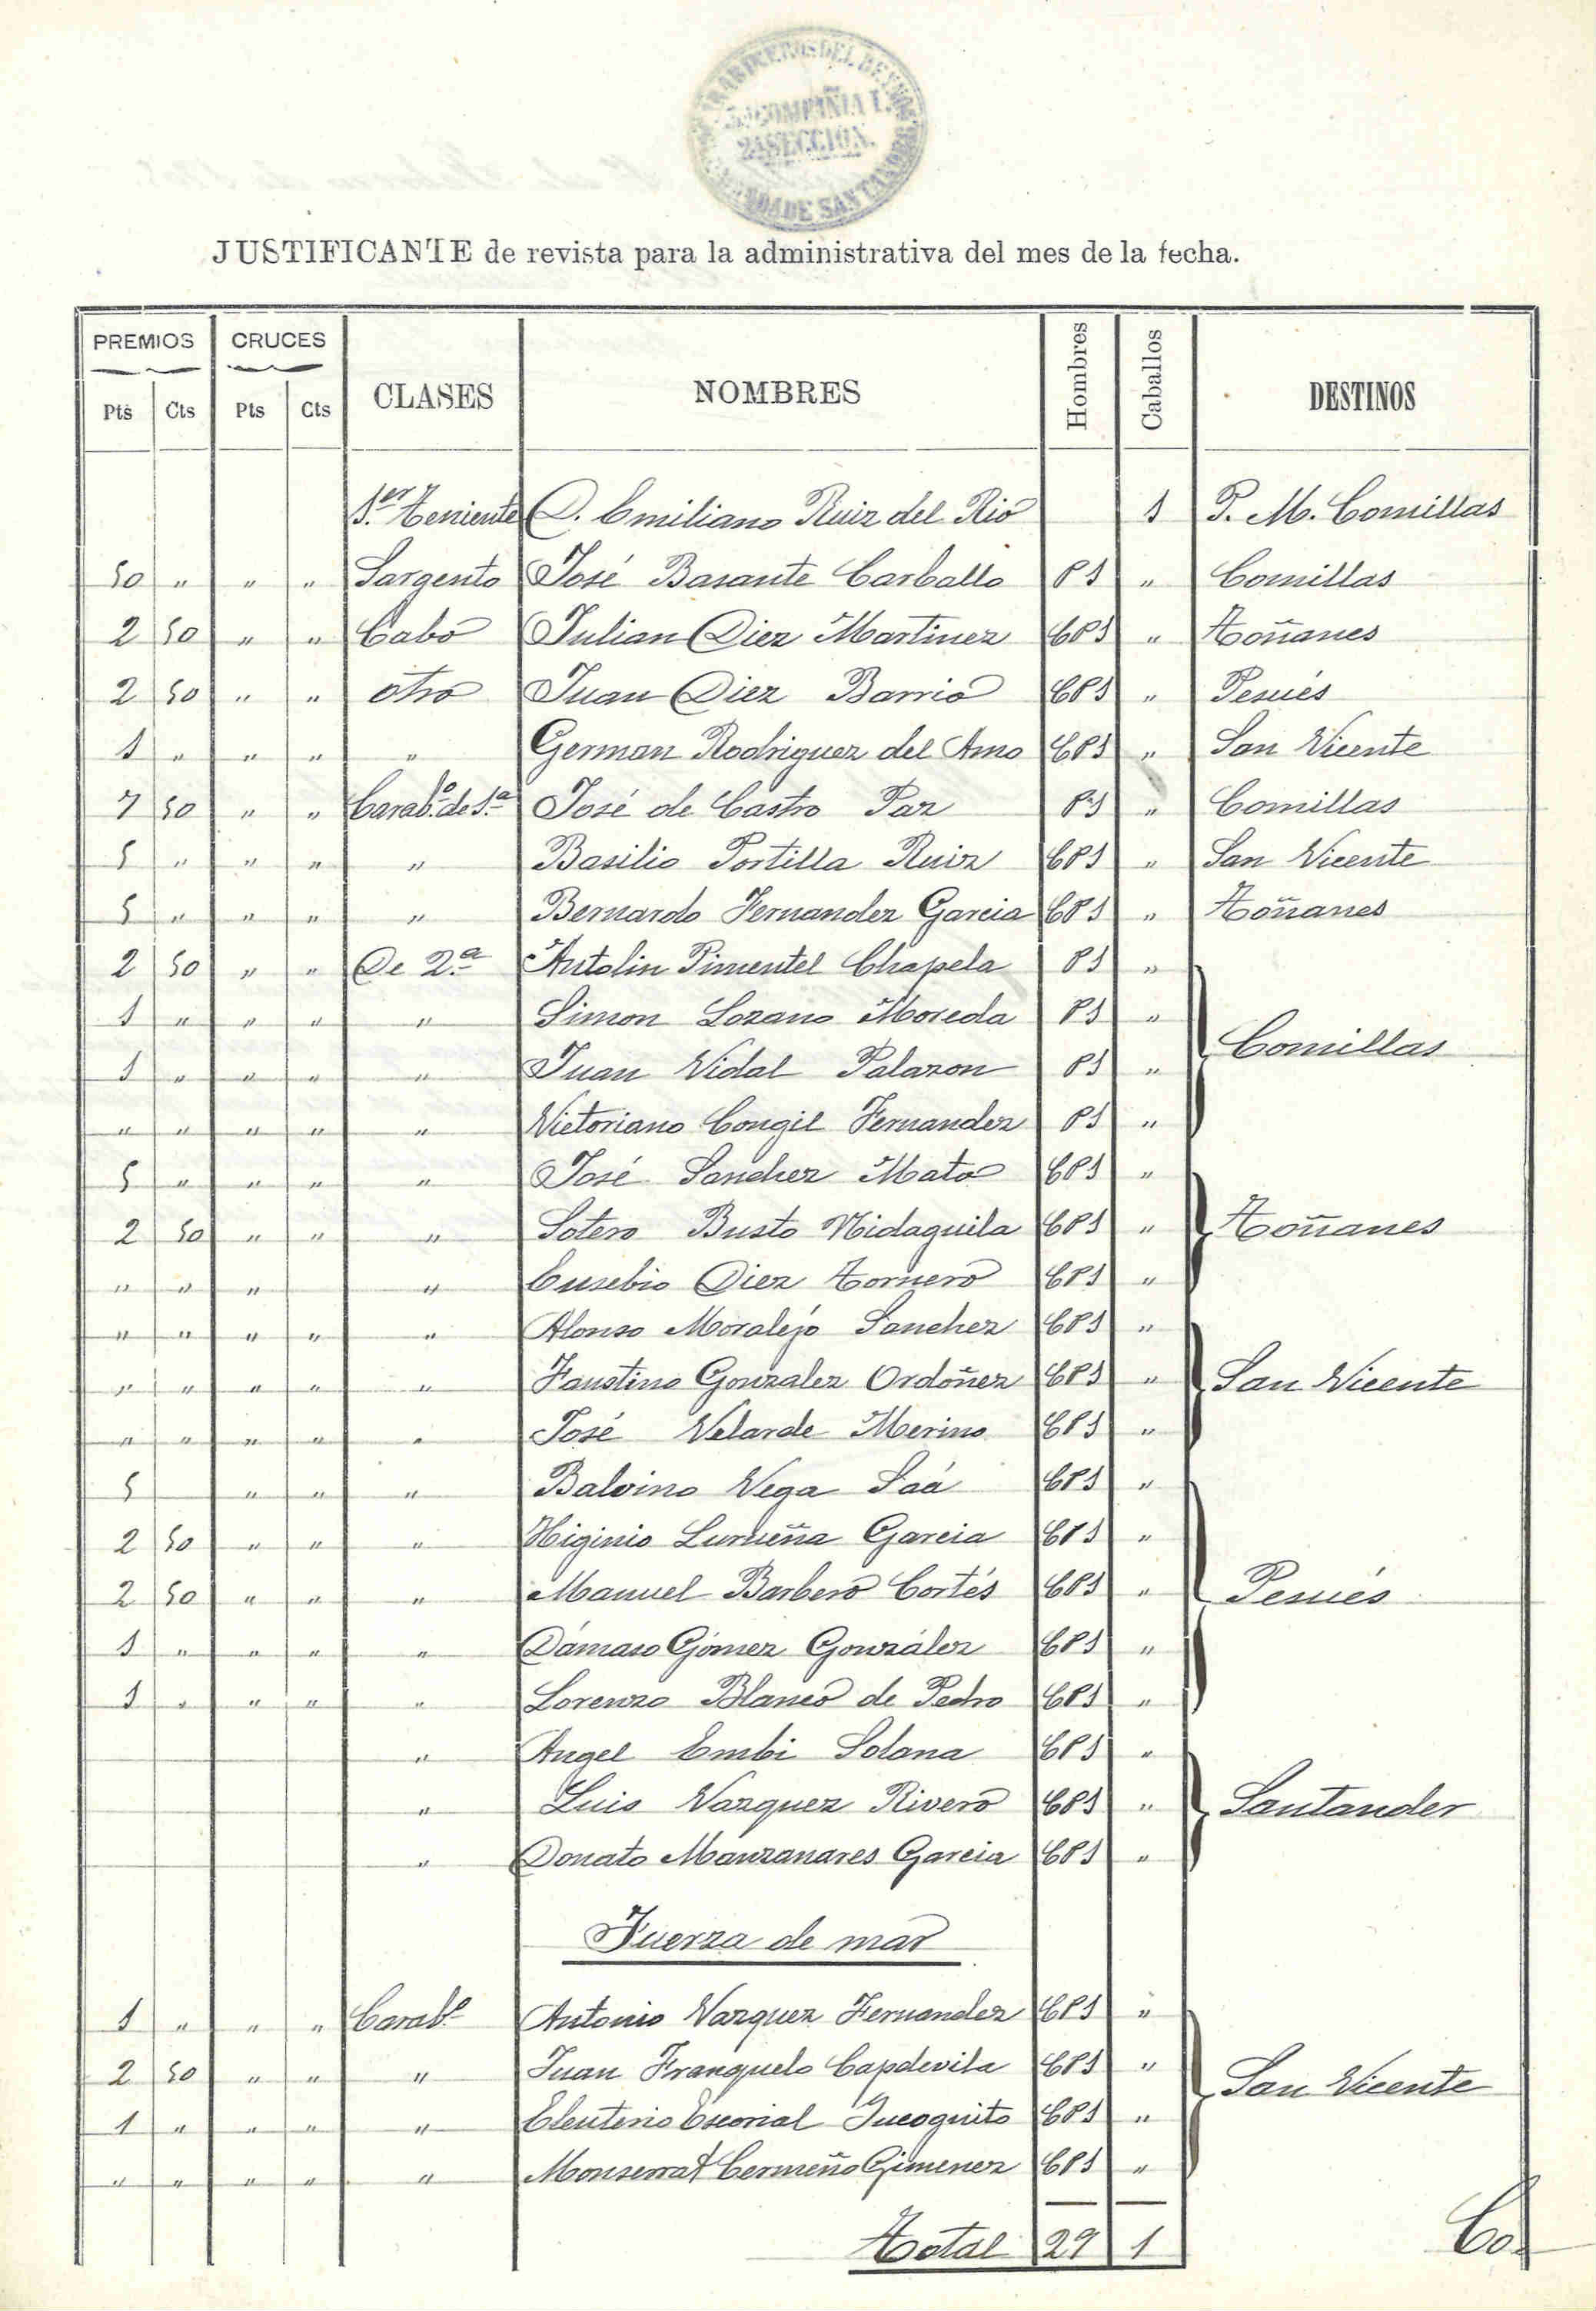 CARABINEROS DEL REYNO
COMPAÑIA 1.
2ª SECCION.
SANTANDER
JUSTIFICANTE de revista para la administrativa del mes de la fecha.
PREMIOS CRUCES CLASES NOMBRES Hombres Caballos DESTINOS
Pts Cts Pts Cts
1.er Teniente D. Emiliano Ruiz del Rio 1 P. M. Comillas
50 " " " Sargento José Basante Carballo P1 " Comillas
2 50 " " Cabo Julian Diez Martinez CP1 " Toñanes
2 50 " " otro Juan Diez Barrio CP1 " Pesués
1 " " " " German Rodriguez del Amo CP1 " San Vicente
7 50 " " Carab.o de 1.a José de Castro Paz P1 " Comillas
5 " " " " Basilio Portilla Ruiz CP1 " San Vicente
5 " " " " Bernardo Fernandez Garcia CP1 " Toñanes
2 50 " " De 2.a Antolin Pimentel Chapela P1 "
1 " " " " Simon Lozano Moreda P1 "
Comillas
1 " " " " Juan Vidal Palazon P1 "
" " " " " Victoriano Congil Fernandez P1 "
5 " " " " José Sanchez Mato CP1 "
2 50 " " " Sotero Busto Hidaguila CP1 " Toñanes
" " " " Eusebio Diez Tornero CP1 "
" " " " " Alonso Moralejo Sanchez CP1 "
" " " " " Faustino Gonzalez Ordoñez CP1 " San Vicente
" " " " " José Velarde Merino CP1 "
5 " " " Balvino Vega Saá CP1 "
2 50 " " " Higinio Lurueña Garcia CP1 "
2 50 " " " Manuel Barbero Cortés CP1 " Pesués
1 " " " " Dámaso Gómez González CP1 "
1 " " " " Lorenzo Blanco de Pedro CP1 "
" Angel Embi Solana CP1 "
" Luis Vazquez Rivero CP1 " Santander
" Donato Manzanares Garcia CP1 "
Fuerza de mar
1 " " " Carab.o Antonio Vazquez Fernandez CP1 "
2 50 " " " Juan Franquelo Capdevila CP1 " San Vicente
1 " " " " Eleuterio Escorial Incognito CP1 "
" " " " " Monserrat Cermeño Gimenez CP1 "
Total 29 1
Co